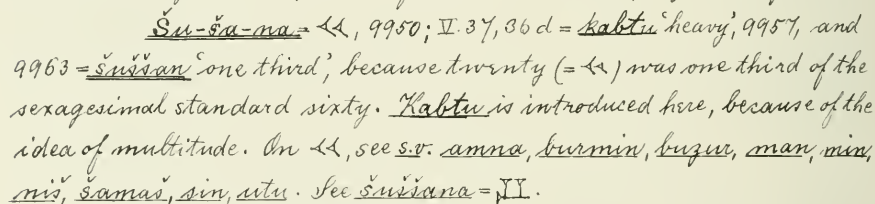 Šu-ša-na = 𒌋𒌋, 9950; V. 37, 36 d = kabtu 'heavy', 9957, and
9963 = šuššan 'one third', because twenty (= 𒌋𒌋) was one third of the
sexagesimal standard sixty. Kabtu is introduced here, because of the
idea of multitude. On 𒌋𒌋, see s.v. amna, burmin, buzur, man, min,
niš, šamaš, sin, utu. See šuššana =